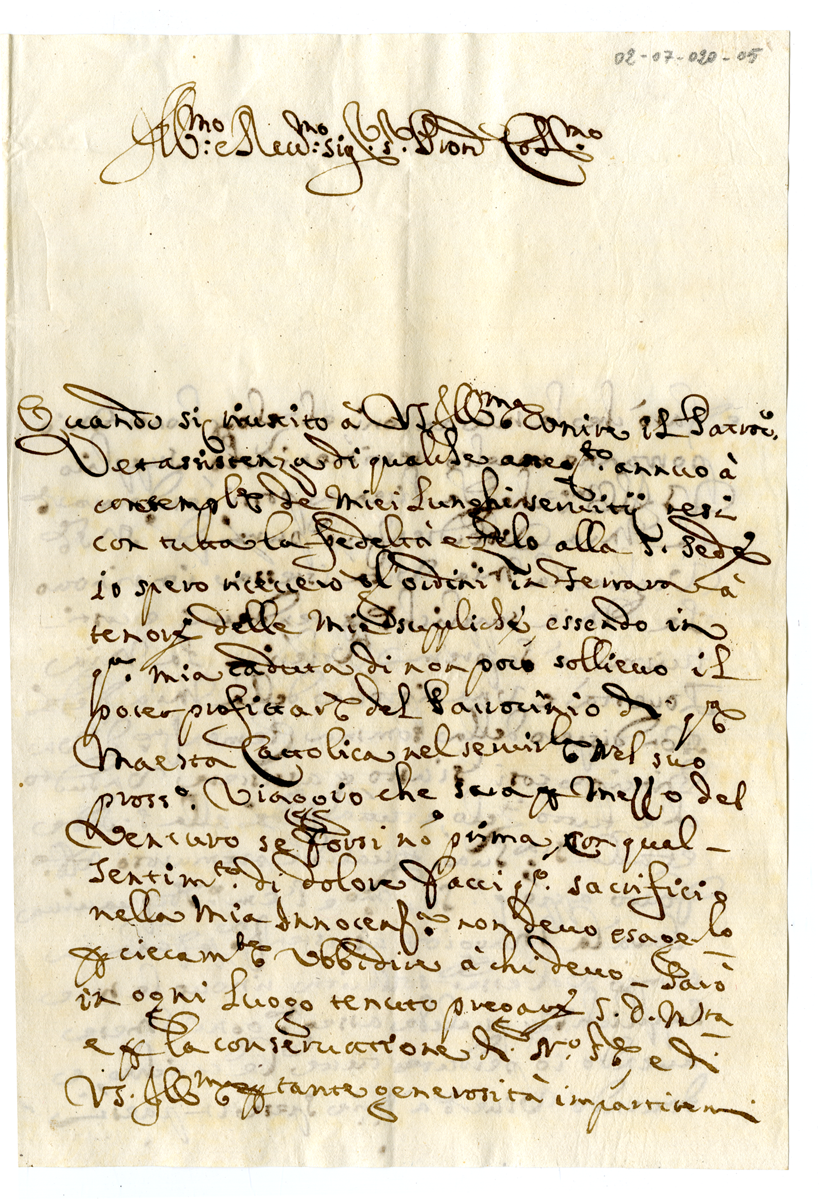 02-07-020-05
Ill.mo e Rev.mo sig.r s.r Pron Col.mo
Quando sij riuscito à VS Ill.ma unire il Patroc.o
et assistenza di qualche asseg.to annuo à
contempl.e de miei lunghi servitij resi
con tutta la fedeltà e zelo alla S. Sede
io spero ricevere gl'ordini in Ferrara à
tenore delle mie suppliche, essendo in
q.a mia caduta di non poco sollievo il
poter profittare del Patrocinio di q.a
Maestà Cattolica nel servirla nel suo
pross.o Viaggio che sarà p mezzo del
Venturo se forsi nõ prima, con qual
sentim.to di dolore facci q.o sacrificio
nella mia Innocenz.a non devo esagelo
p ciecam.te ubbidire à chi devo - Sarò
in ogni luogo tenuto pregare S. D. Mtà
e p la conservatione di N.ro S.re, e di
VS. Ill.ma p tante generosità impartitemi